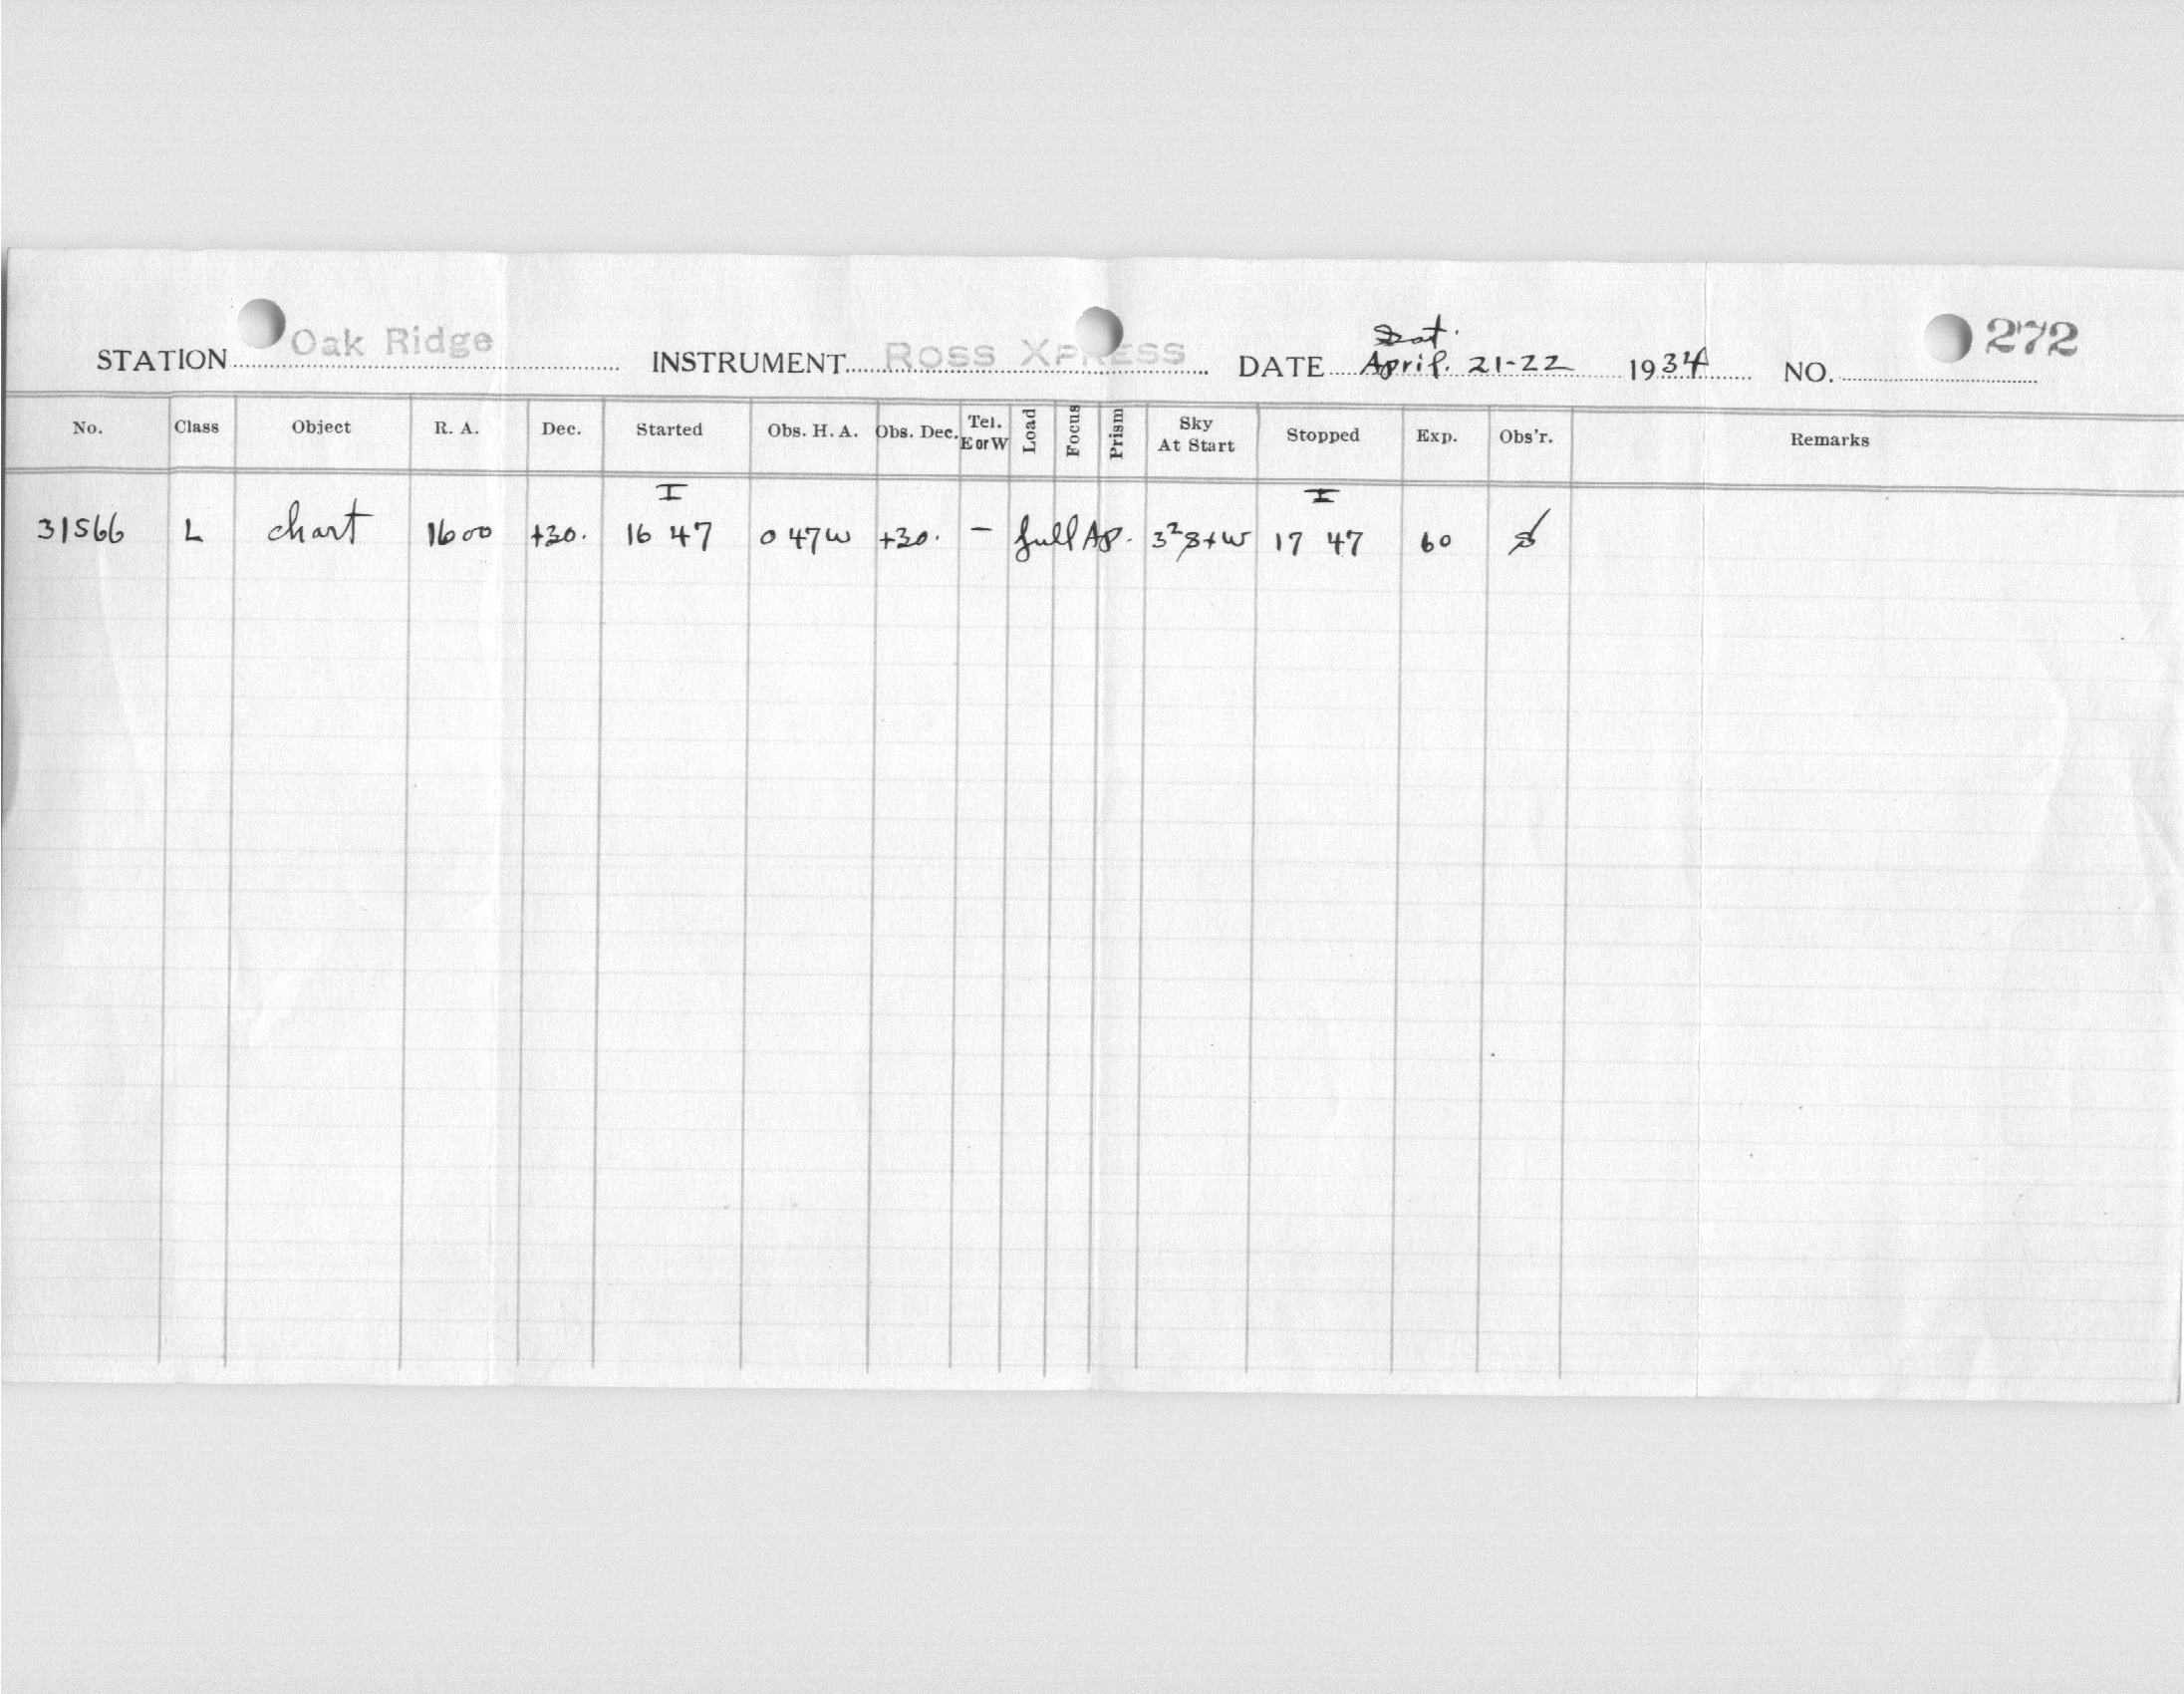 Sat.
STATION Oak Ridge INSTRUMENT ROSS XPRESS DATE April. 21-22 1934 NO. 272
No. Class Object R. A. Dec. Started Obs. H. A. Obs. Dec. Tel. E or W Load Focus Prism Sky At Start Stopped Exp. Obs'r. Remarks
I I
31566 L chart 16 00 +30. 16 47 0 47 W +30. – full Ap. 17 47 60